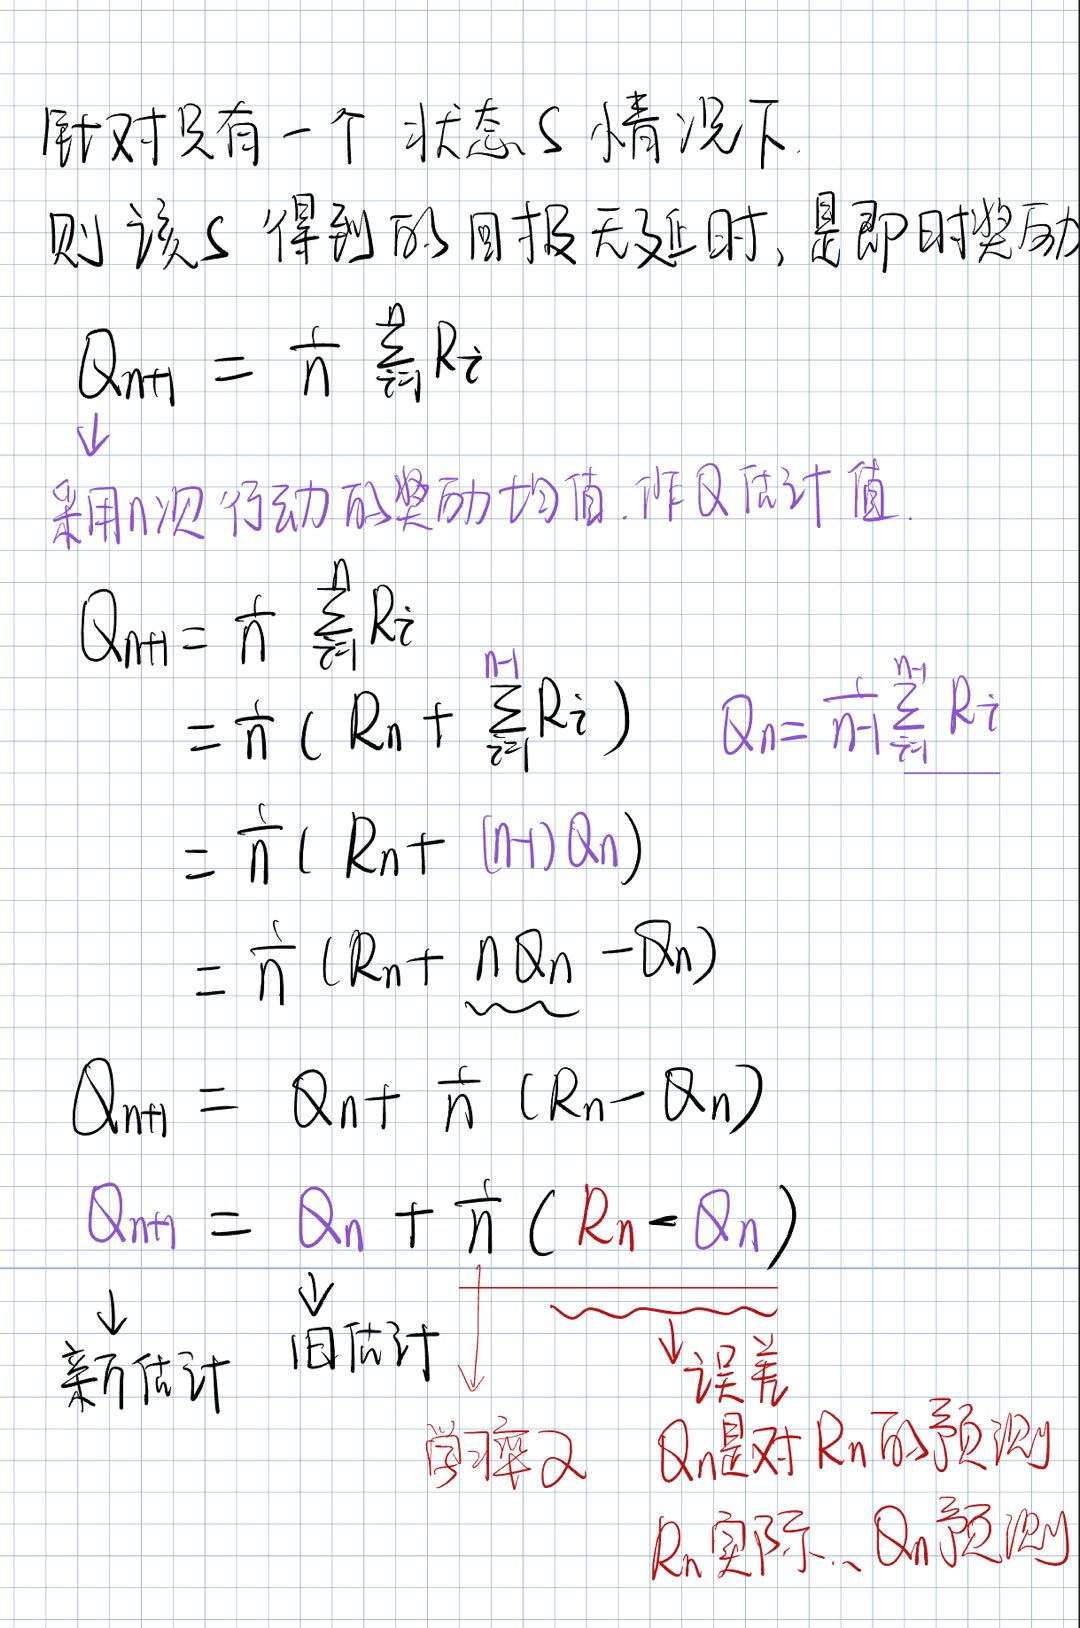 针对只有一个 状态S 情况下.
则该S 得到的回报无延时、是即时奖励
Qn+1 = 1/n Σ(i=1→n) Ri
↓
采用n次行动的奖励均值.作Q估计值.
Qn+1 = 1/n Σ(i=1→n) Ri
= 1/n ( Rn + Σ(i=1→n-1) Ri ) Qn = 1/(n-1) Σ(i=1→n-1) Ri
= 1/n ( Rn + (n-1) Qn )
= 1/n (Rn + n Qn - Qn)
Qn+1 = Qn + 1/n (Rn - Qn)
Qn+1 = Qn + 1/n ( Rn - Qn )
↓ ↓ ↓ ↓
新估计 旧估计 误差
学习率α Qn是对Rn的预测
Rn实际.、Qn预测